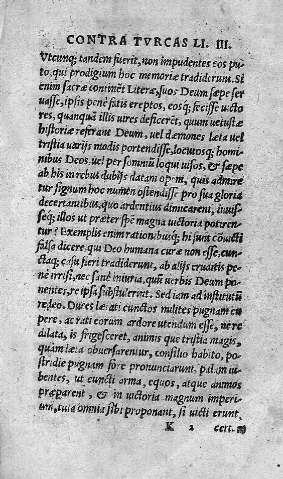 CONTRA TVRCAS LI. III.
Vtcunq; tandem fuerit, non impudentes eos pu
to, qui prodigium hoc memoriæ tradiderunt. Si
enim sacræ continent Literæ, suos Deum sæpe ser
uasse, ipsis penè fatis ereptos, eosq; fecisse uicto
res, quanquã illis uires deficerēt, quum uetustæ
historiæ referant Deum, uel dæmones læta uel
tristia uarijs modis portendisse, locutosq; homi
nibus Deos uel per somnũ loqui uisos, & sæpe
ab his in rebus dubijs datam opem, quis admire
tur signum hoc numen ostendisse pro sua gloria
decertantibus, quo ardentius dimicarent, inuis
seq; illos ut præter spem magna uictoria potiren
tur? Exemplis enim rationibusq; hi sunt cōuicti
falsa dicere qui Deo humana curæ non esse, cun
ctaq; casu fieri tradiderunt, ab alijs cruditis pe
nè irrisi, nec sanè iniuria, quũ uerbis Deum po
nentes, re ipsa sustulerint. Sed iam ad institutũ
redeo. Duces lætati cunctos milites pugnam cu
pere, ac rati eorum ardore utendum esse, ne re
dilata, is frigesceret, animis que tristia magis,
quàm læta obuersarentur, consilio habito, po-
stridie pugnam fore pronunciarunt. palam iu-
bentes, ut cuncti arma, equos, atque animos
præparent, & in uictoria magnum imperi-
um, omnia sibi proponant, si uicti erunt,
K 2 cert